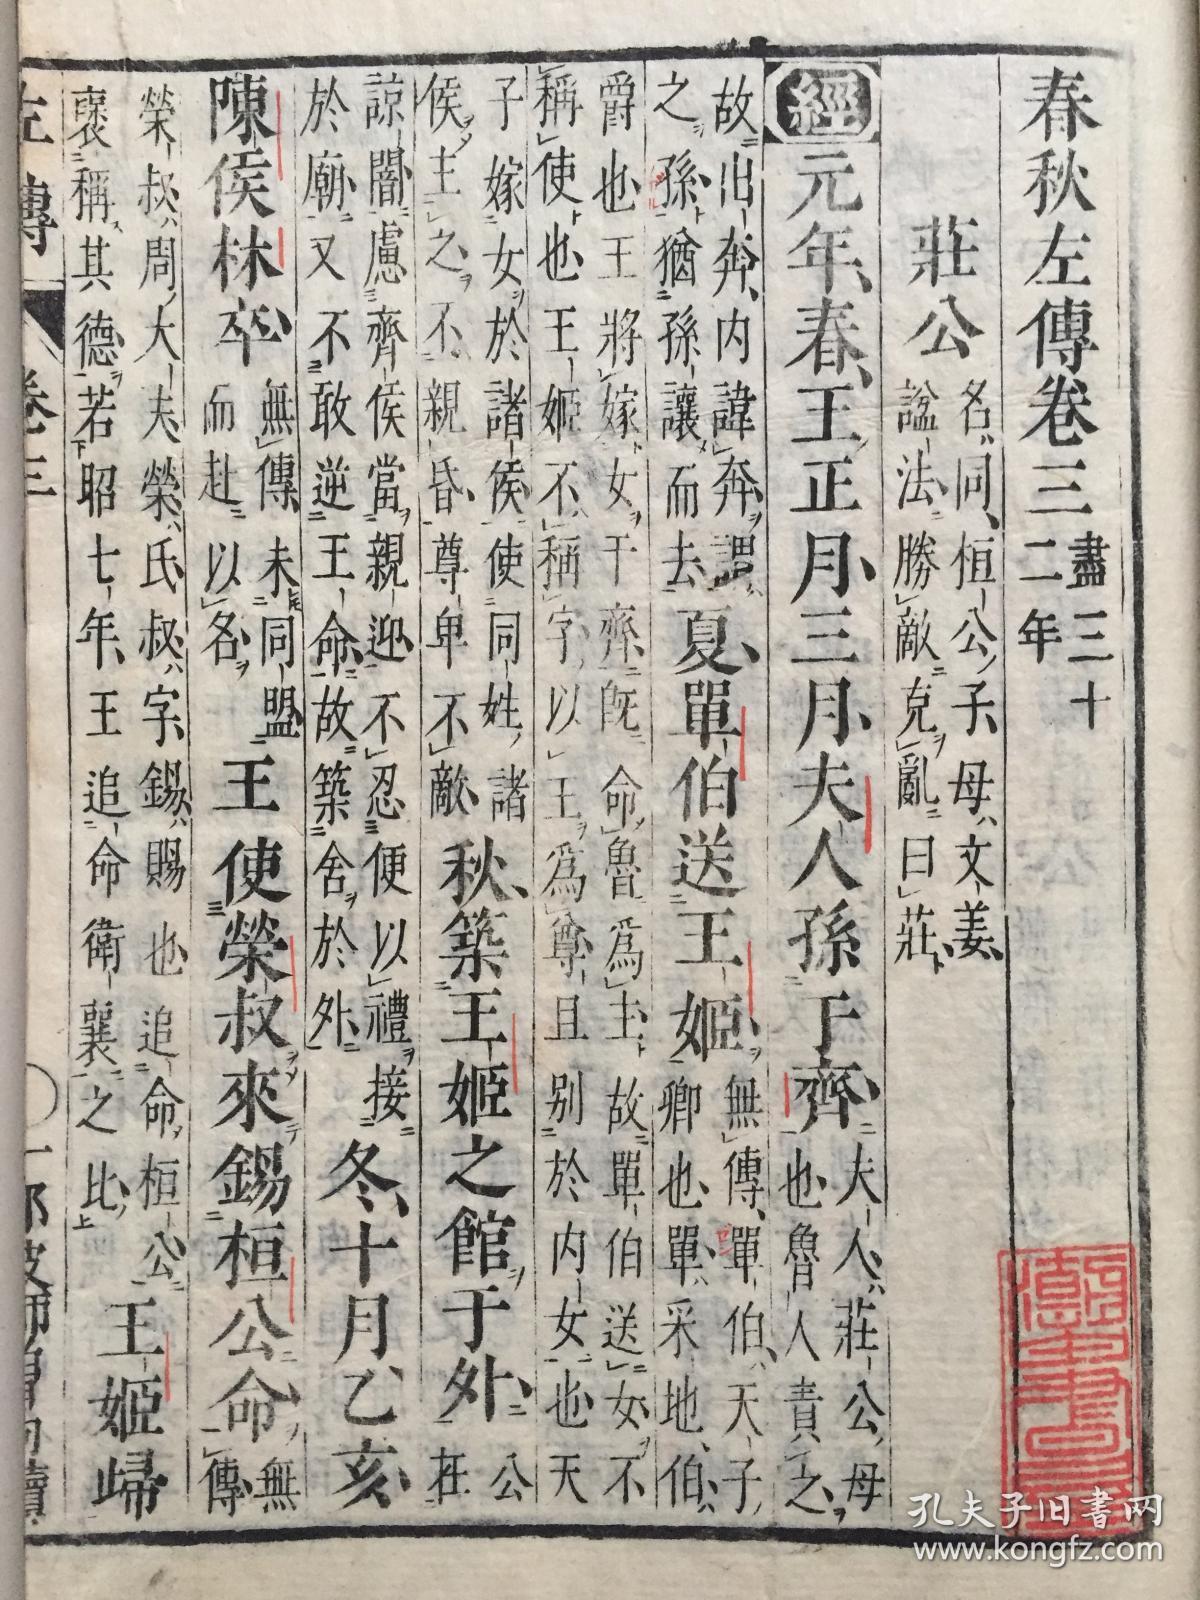 春秋左傳卷三 盡三十二年
莊公 名同桓公子母文姜諡法勝敵克亂曰莊
經 元年春王正月三月夫人孫于齊 夫人莊公母也魯人責之
故出奔内諱奔謂之孫猶孫讓而去 夏單伯送王姬 無傳單伯天子卿也單采地伯
爵也王將嫁女于齊旣命魯爲主故單伯送女不稱使也王姬不稱字以王爲尊且别於内女也天
子嫁女於諸侯使同姓諸侯主之不親昏尊卑不敵 秋築王姬之館于外 公在
諒闇慮齊侯當親迎不忍便以禮接於廟又不敢逆王命故築舍於外 冬十月乙亥
陳侯林卒 無傳未同盟而赴以名 王使榮叔來錫桓公命 無傳
榮叔周大夫榮氏叔字錫賜也追命桓公襃稱其德若昭七年王追命衛襄之比 王姬歸
左傳 卷三 一
孔夫子旧书网
www.kongfz.com